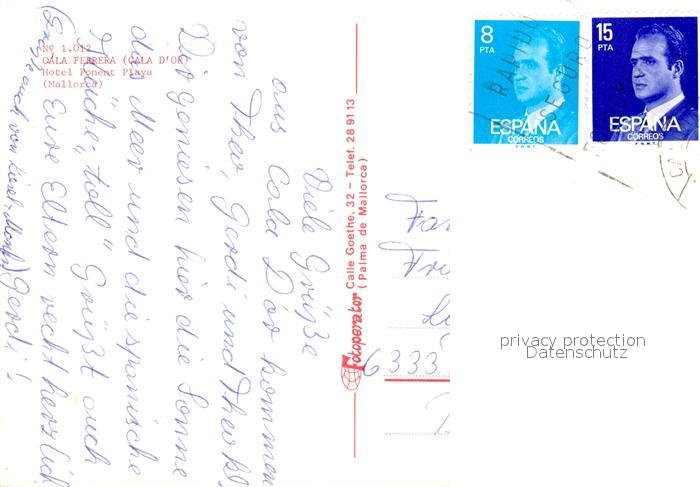 8
PTA
ESPAÑA
CORREOS
F.N.M.T.
15
PTA
ESPAÑA
CORREOS
F.N.M.T.
Nº 1.012
CALA FERRERA (CALA D'OR)
Hotel Ponent Playa
(Mallorca)
Viele Grüße
aus Cala D'or kommen
von Theo, Gerdi und Theo Kl.
Wir genießen hier die Sonne
das Meer und die spanische
Küche „toll" Grüßt auch
Eure Eltern recht herzlich
Gerdi!
(Grüße auch von
Fotoperator Calle Goethe, 32 – Telef. 28 91 13
(Palma de Mallorca)
Fa
6333
privacy protection
Datenschutz